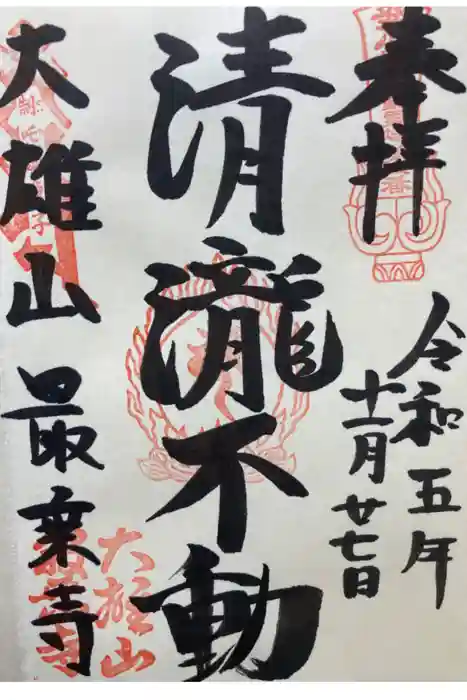 奉拝
令和五年
十一月廿七日
清瀧不動
大雄山最乗寺
大雄山